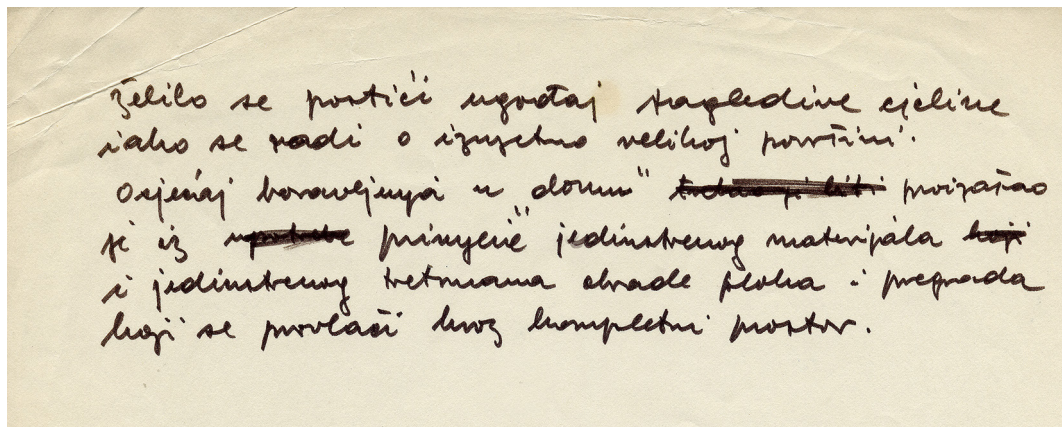 Želilo se postići ugođaj sagledive cjeline
iako se radi o izuzetno velikoj površini.
Osjećaj boravljenja u "domu" proizašao
je iz primjene jedinstvenog materijala
i jedinstvenog tretmana obrade ploha i pregrada
koji se provlači kroz kompletni prostor.